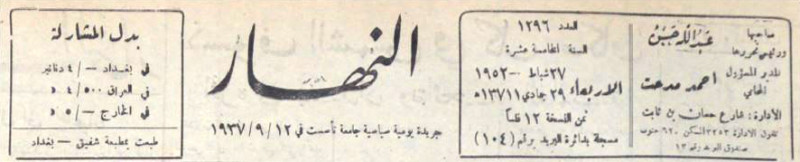 صاحبها
ورئيس تحريرها
عبدالله حسين
المدير المسؤول
المحامي
احمد مدحت
الادارة: شارع حسان بن ثابت
تلفون الادارة ٣٢٥٣ السكن ٦٢٠ جنوب
صندوق البريد رقم ١٣
العدد ١٢٩٦
السنة الخامسة عشرة
٢٧ شباط ١٩٥٢
الاربعاء
٢٩ جمادي ١ ١٣٧١ﻫ
ثمن النسخة ١٢ فلسا
مسجلة بدائرة البريد برقم (١٠٤)
النهار
جريدة يومية سياسية جامعة تأسست في ١٩٣٧/٩/١٢
بدل المشاركة
في بغداد —/٤ دنانير
في العراق ٤/٥٠٠ د
في الخارج —/٥ د
طبعت بمطبعة شفيق - بغداد